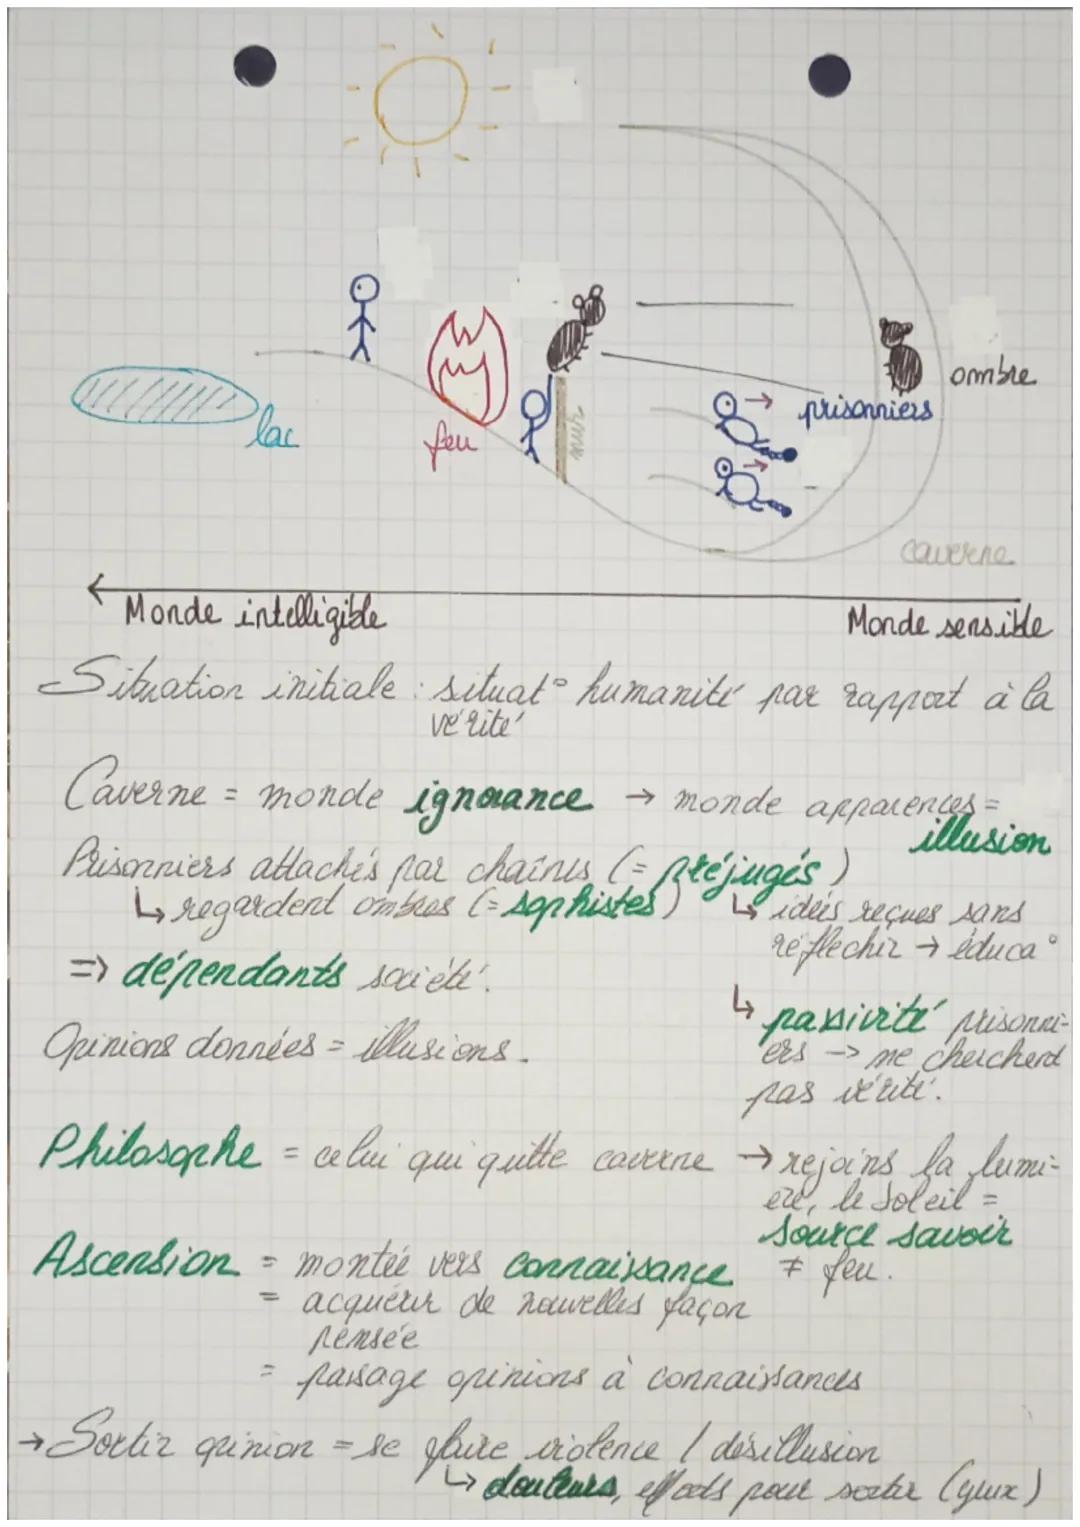 ombre
prisonniers
lac
feu
mur
caverne
Monde intelligible
Monde sensible
Situation initiale : situat° humanité par rapport à la
vérité
Caverne = monde ignorance → monde apparences =
illusion
Prisonniers attachés par chaînes (= préjugés)
↳ regardent ombres (= sophistes)
↳ idées reçues sans
réflechir → éduca°
=> dépendants société.
↳ passivité prisonni-
ers -> ne cherchent
pas vérité.
Opinions données = illusions.
Philosophe = celui qui quitte caverne → rejoins la lumi-
ère, le soleil =
source savoir
≠ feu.
Ascension = montée vers connaissance
= acquérir de nouvelles façon
pensée
= passage opinions à connaissances
→ Sortir opinion = se faire violence / désillusion
↳ douleurs, efforts pour sortir (yeux)